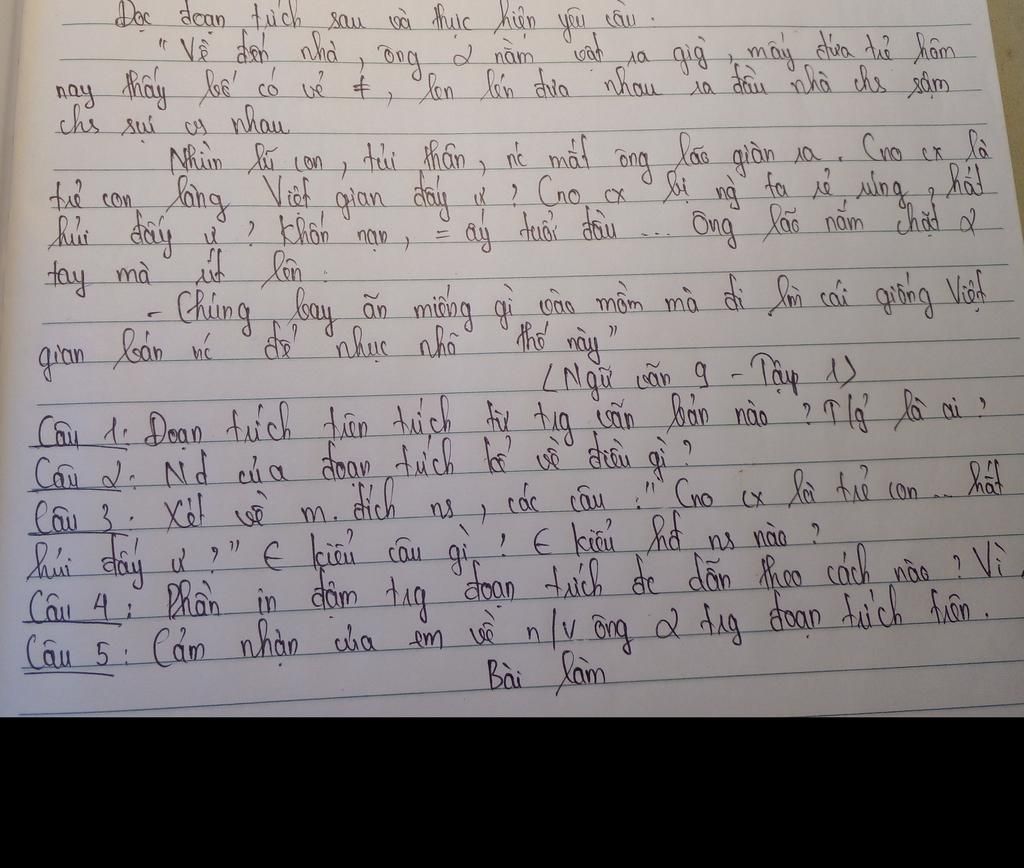 Đọc đoạn trích sau và thực hiện yêu cầu.
" Về đến nhà, ông 2 nằm vật ra giường, mấy đứa trẻ hôm
nay thấy bố có vẻ ≠, len lén đưa nhau ra đầu nhà chs sậm
chs sụi vs nhau
Nhìn lũ con, tủi thân, nc mắt ông lão giàn ra. Cno cx là
trẻ con làng Việt gian đấy ư ? Cno cx bị ng ta rẻ rúng, hắt
hủi đấy ư ? Khốn nạn, = ấy tuổi đầu ... Ông lão nắm chặt 2
tay mà rít lên.
- Chúng bay ăn miếng gì vào mồm mà đi lm cái giống Việt
gian bán nc để nhục nhã thế này"
(Ngữ văn 9 - Tập 1)
Câu 1: Đoạn trích trên trích từ trg văn bản nào ? T/g' là ai ?
Câu 2: Nd của đoạn trích kể về điều gì ?
Câu 3. Xét về m. đích ns, các câu : " Cno cx là trẻ con ... hắt
hủi đấy ư ?" ∈ kiểu câu gì ? ∈ kiểu hđ ns nào ?
Câu 4 : Phần in đậm trg đoạn trích đc dẫn theo cách nào ? Vì
Câu 5 : Cảm nhận của em về n/v ông 2 trg đoạn trích trên.
Bài làm